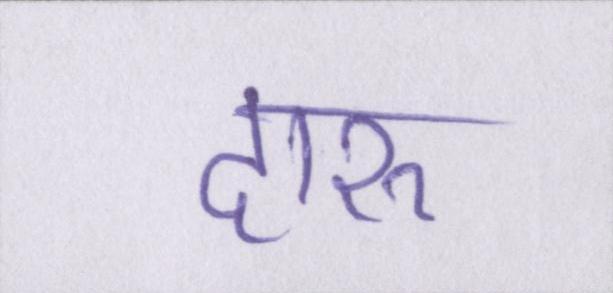 दारू